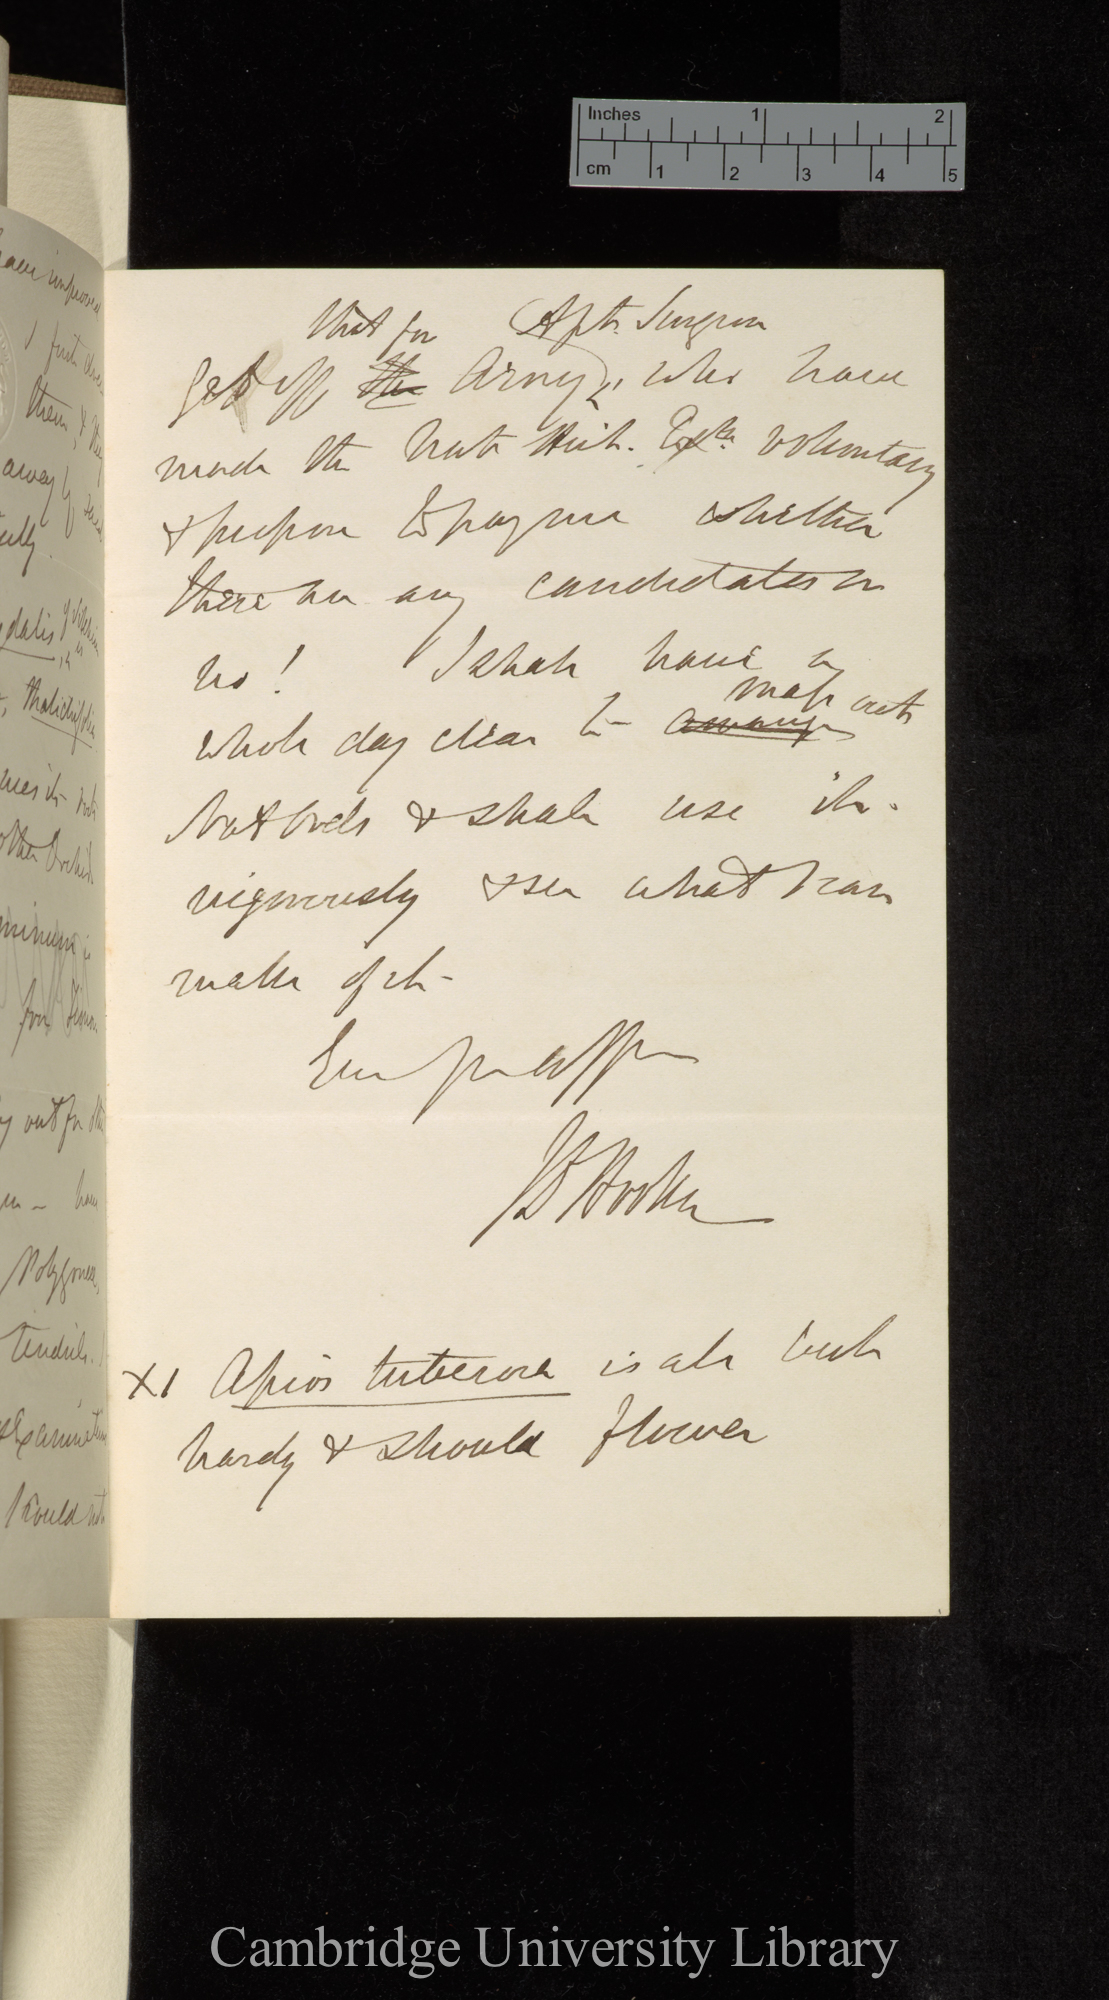 Inches 1 2
cm 1 2 3 4 5
that for Asst. Surgeon
get off the Army, who have
made the Nat. Hist. Exn. voluntary
& propose to pay me whether
there are any candidates or
no! I shall have a
map out
whole day clear to arrange
Nat Ords & shall use it
vigorously & see what I can
make of it—
Ever yrs aff
JD Hooker
X1 Apios tuberosa is all but
hardy & should flower
have improved
I first
them, &
away
thalictrifolia
other Orchids
for
out for
have
Polygoneae
tendrils.
Examination
I could not
Cambridge University Library